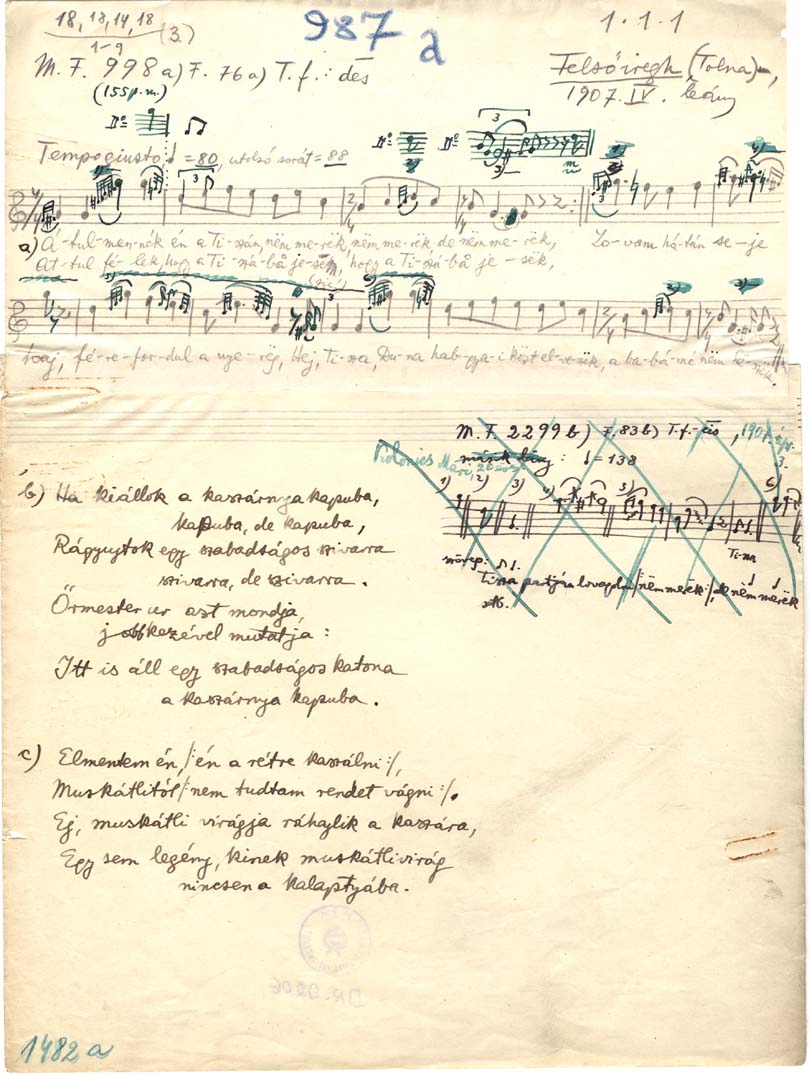 18, 18, 14, 18
1-9
(3.)
987 a
1.1.1
M. F. 998 a) F. 76 a) T. f.: des
(155 p. m.)
Felsőiregh (Tolna),
1907. IV. leány
Tempo giusto ♩ = 80, utolsó sorát = 88
a) Á-tul-men-nék én a Ti-szán, nëm me-rëk, nëm me-rëk, de nëm me-rëk, Lo-vam há-tán se-je
At-tul fé-lek, hogy a Ti-szá-bå je-sëk, hogy a Ti-szá-bå je-sëk,
haj, fé-re-for-dul a nye-rëg, Hej, Ti-sza, Du-na hab-gya-i közt el-veszëk, a ba-bá-mé nëm lë-szëk.
M. F. 2299 b) F. 83 b) T. f.: cis, 1907. ápr. 3.
másik lány: ♩ = 138
1) 2) 3) 4) 5) 6)
szöveg:
Ti-sza
Tisza partján lovagolni /: nëm merëk :/, de nëm merëk
stb.
b) Ha kiállok a kaszárnya kapuba,
kapuba, de kapuba,
Rágyujtok egy szabadságos szivarra
szivarra, de szivarra.
Őrmester ur azt mondja,
jobb kezével mutatja:
Itt is áll egy szabadságos katona
a kaszárnya kapuba.
c) Elmentem én, /: én a rétre kaszálni :/,
Muskátlitól /: nem tudtam rendet vágni :/.
Ej, muskátli virágja ráhajlik a kaszára,
Egy sem legény, kinek muskátlivirág
nincsen a kalaptyába.
DR. 9206
1482 a